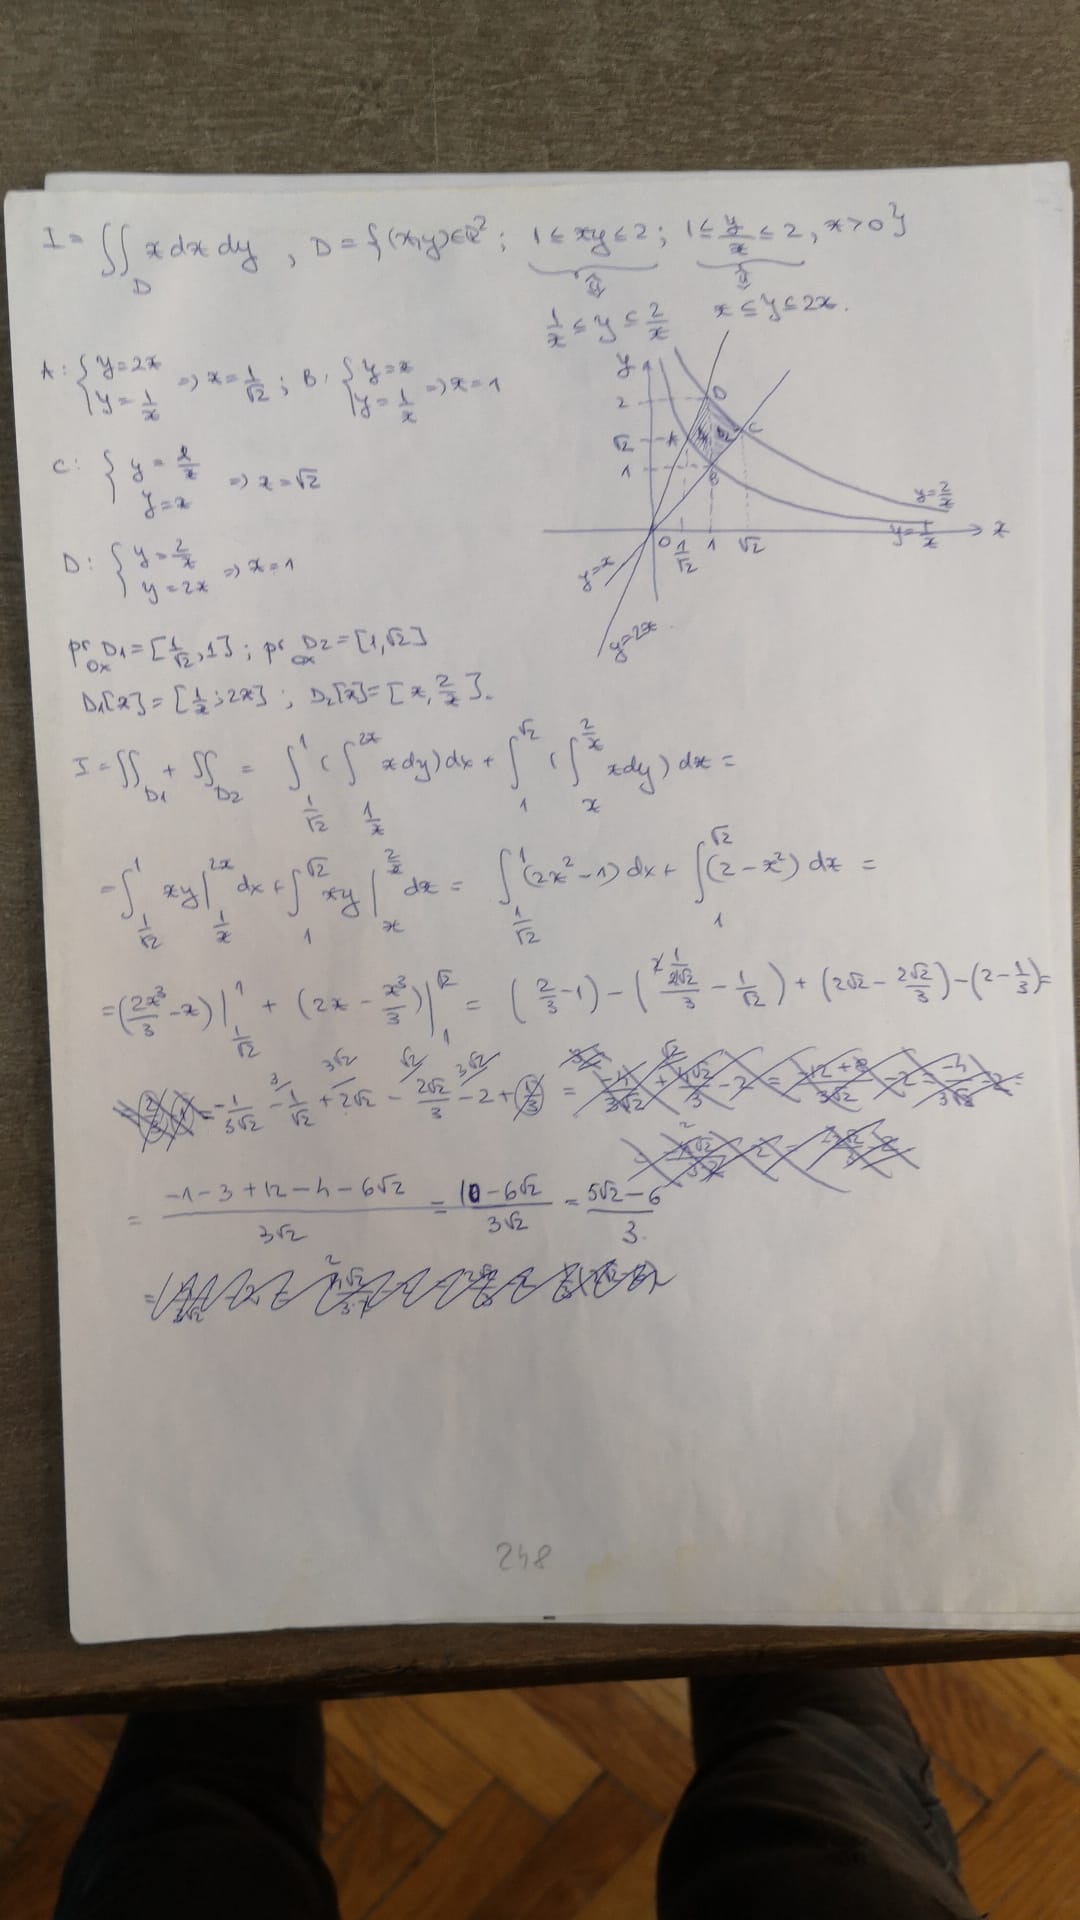 I = ∬_D x dx dy , D = {(x,y)∈ℝ² ; 1 ≤ xy ≤ 2 ; 1 ≤ y/x ≤ 2, x>0}
⇕ ⇕
1/x ≤ y ≤ 2/x x ≤ y ≤ 2x.
A: { y=2x y=1/x => x=1/√2 ; B: { y=x y=1/x => x=1
C: { y=2/x y=x => x=√2
D: { y=2/x y=2x => x=1
y
2
√2
1
A
D
C
B
D2
y=2/x
y=1/x
x
0 1/√2 1 √2
y=x
y=2x
pr_Ox D1=[1/√2,1] ; pr_Ox D2=[1,√2]
D1[x]=[1/x;2x] ; D2[x]=[x,2/x].
I = ∬_D1 + ∬_D2 = ∫_{1/√2}^{1} (∫_{1/x}^{2x} x dy) dx + ∫_{1}^{√2} (∫_{x}^{2/x} x dy) dx =
= ∫_{1/√2}^{1} xy |_{1/x}^{2x} dx + ∫_{1}^{√2} xy |_{x}^{2/x} dx = ∫_{1/√2}^{1} (2x²-1) dx + ∫_{1}^{√2} (2-x²) dx =
= (2x³/3 - x) |_{1/√2}^{1} + (2x - x³/3) |_{1}^{√2} = (2/3 - 1) - (2·1/2√2/3 - 1/√2) + (2√2 - 2√2/3) - (2 - 1/3) =
= -1/3√2 - 1/√2 + 2√2 - 2√2/3 - 2 + 1/3 =
= (-1-3+12-4-6√2)/3√2 = (10-6√2)/3√2 = (5√2-6)/3.
248